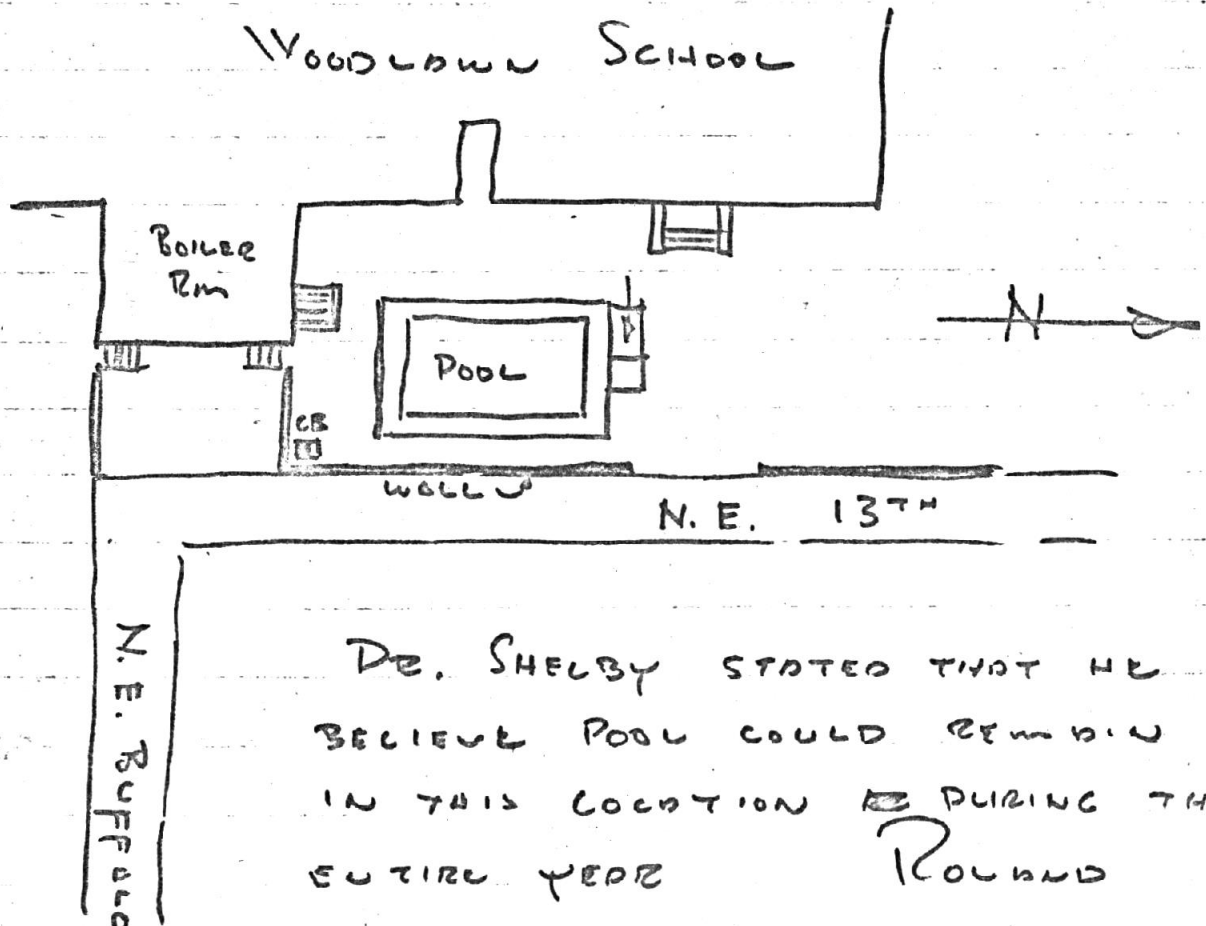 WOODLAWN SCHOOL
BOILER
RM
N
POOL
CB
WALL
N.E. 13TH
N.E. BUFFALO
DR. SHELBY STATED THAT HE
BELIEVE POOL COULD REMAIN
IN THIS LOCATION DURING TH
ENTIRE YEAR ROLAND